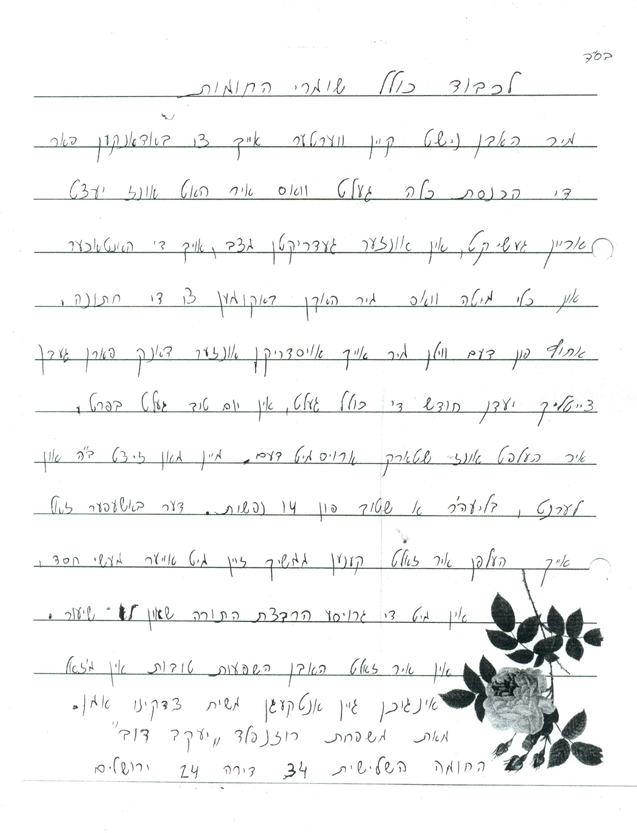 בס"ד
לכבוד כולל שומרי החומות
מיר האבן נישט קיין ווערטער אייך צו באדאנקען פאר
די הכנסת כלה געלט וואס איר האט אונז יעצט
אריין געשיקט, אין אונזער געדריקטן מצב, אויך די האנטוכער
און כלי מיטה וואס מיר האבן באקומען צו די חתונה.
אחוץ פון דעם ווילן מיר אייך אויסדריקן אונזער דאנק פארן געבן
צייטליך יעדן חודש די כולל געלט, אין יום טוב געלט בפרט,
איר העלפט אונז שטארק ארויס מיט דעם. מיין מאן זיצט ב"ה און
לערנט, בליעה"ר א שטוב פון 14 נפשות. דער באשעפער זאל
אייך העלפן איר זאלט קענען ממשיך זיין מיט אייער מעשי חסד,
אין מיט די גרויסע הרבצת התורה שאין לו שיעור.
אין איר זאלט האבן השפעות טובות אין מ'זאל
אינגיכן גיין אנטקעגן משיח צדקינו אמן.
מאת משפחת רוזנפלד "יעקב דוב"
החומה השלישית 34 דירה 24 ירושלים